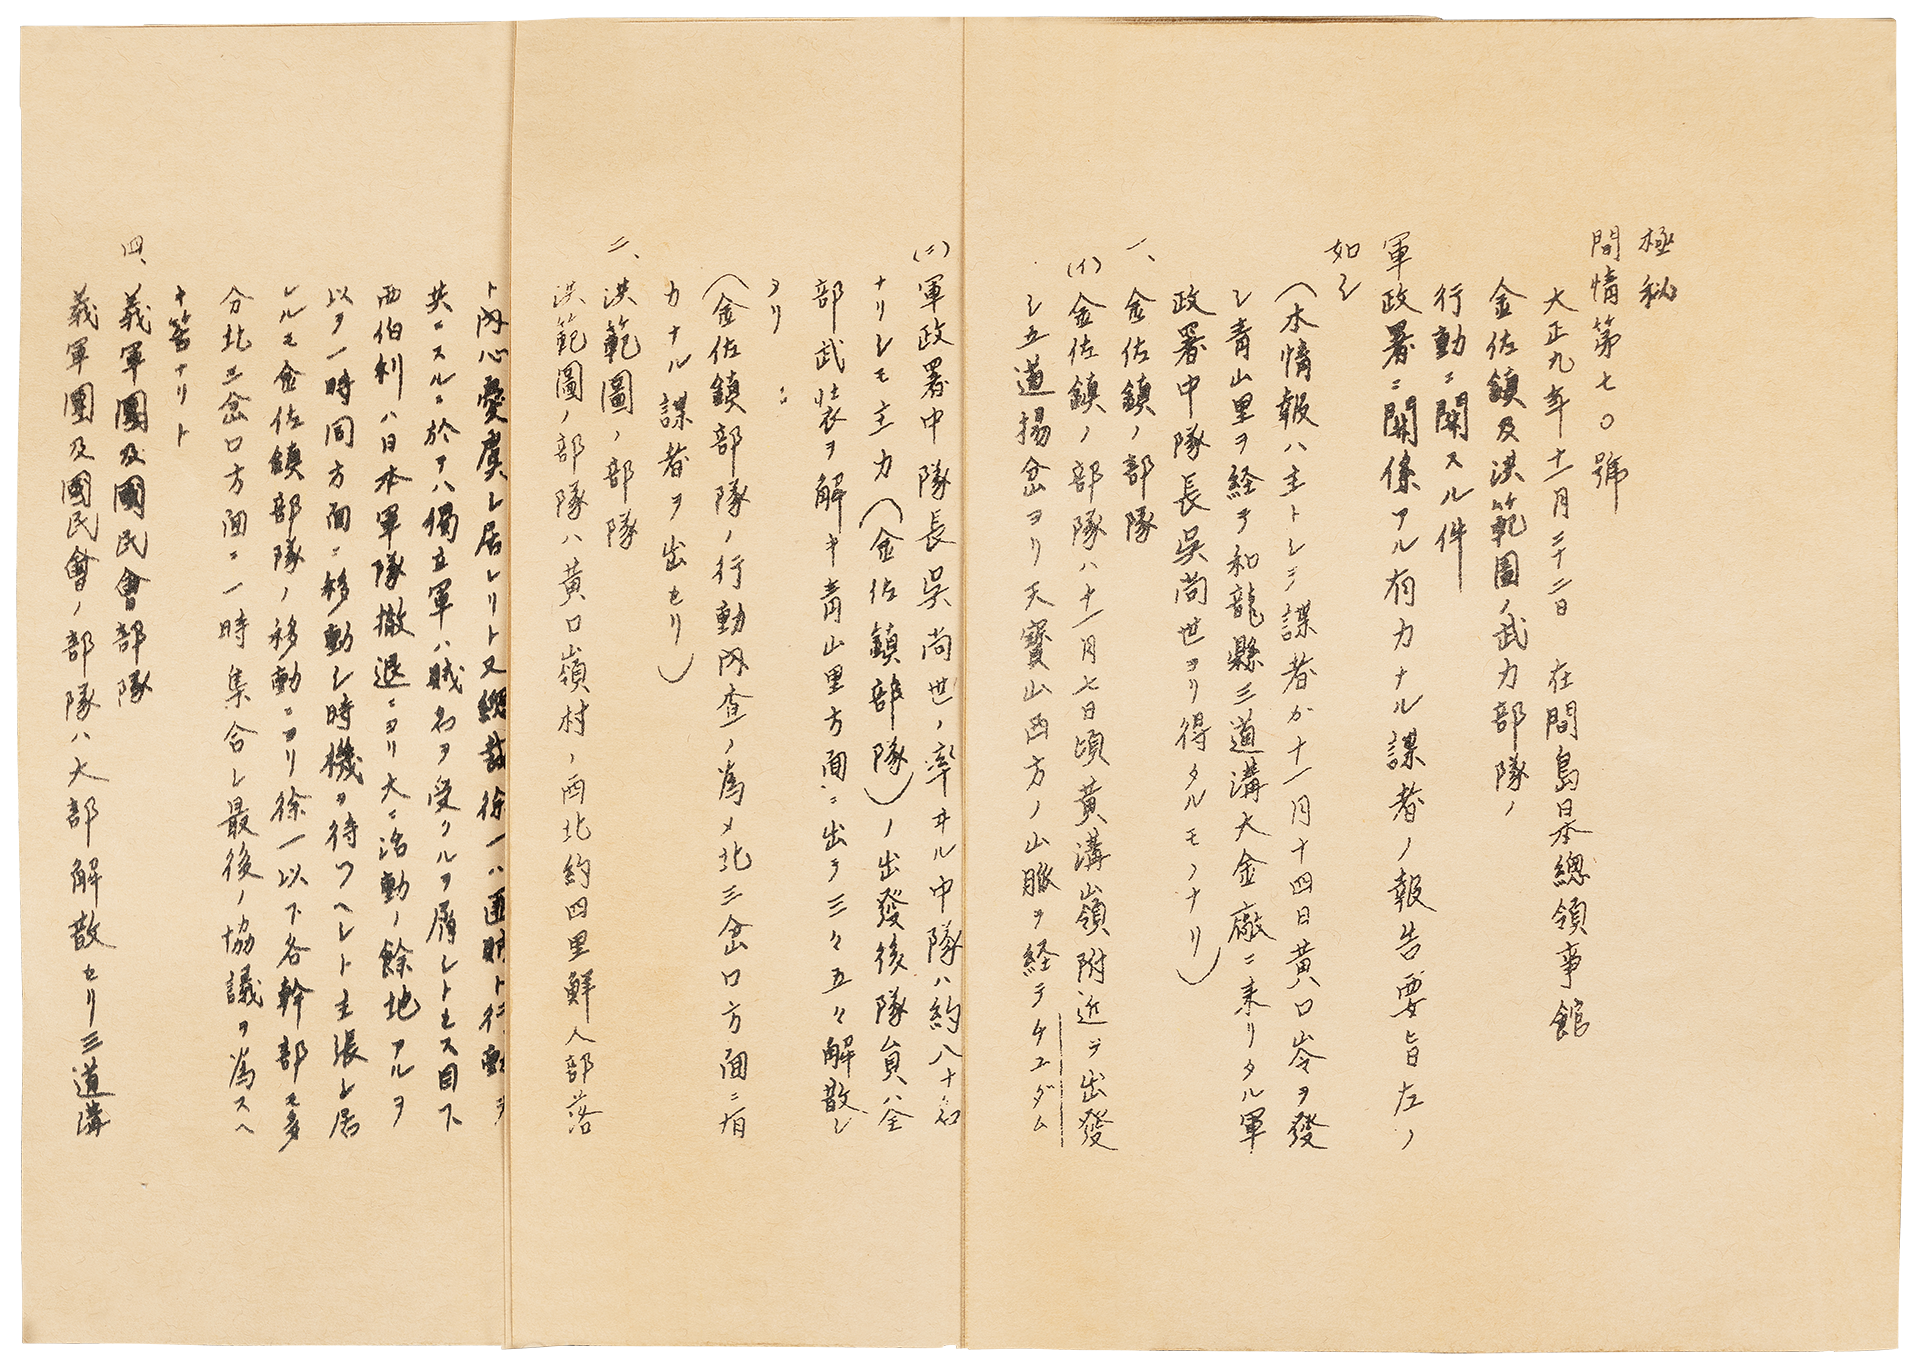 極秘
間情第七〇號
大正九年十一月二十二日　在間島日本總領事館
金佐鎮及洪範圖ノ武力部隊ノ
行動ニ関スル件
軍政署ニ関係アル有力ナル諜者ノ報告要旨左ノ
如シ
（本情報ハ主トシテ諜者カ十一月十四日黄口岺ヲ發
シ青山里ヲ経テ和龍縣三道溝大金廠ニ来リタル軍
政署中隊長呉尚世ヨリ得タルモノナリ）
一、金佐鎮ノ部隊
(イ)金佐鎮ノ部隊ハ十一月七日頃黄溝嶺附近ヲ出發
シ五道揚岔ヨリ天寶山西方ノ山脈ヲ経テチユダム
(ニ)軍政署中隊長呉尚世ノ率ヰル中隊ハ約八十名
ナリシモ主力（金佐鎮部隊）ノ出發後隊員ハ全
部武装ヲ解キ青山里方面ニ出テ三々五々解散シ
ヲリ
（金佐鎮部隊ノ行動内査ノ為メ北三岔口方面ニ有
力ナル諜者ヲ出セリ）
二、洪範圖ノ部隊
洪範圖ノ部隊ハ黄口嶺村ノ西北約四里鮮人部落
ト内心憂虞シ居レリト又總裁徐一ハ匪賊ト行動ヲ
共ニスルニ於テハ獨立軍ハ賊名ヲ受クルヲ屑シトセス目下
西伯利ハ日本軍隊撤退ニヨリ大ニ活動ノ餘地アルヲ
以テ一時同方面ニ移動シ時機ヲ待ツヘシト主張シ居
レルモ金佐鎮部隊ノ移動ニヨリ徐一以下各幹部モ多
分北三岔口方面ニ一時集合シ最後ノ協議ヲ為スヘ
キ筈ナリト
四、義軍團及國民會部隊
義軍團及國民會ノ部隊ハ大部解散セリ三道溝